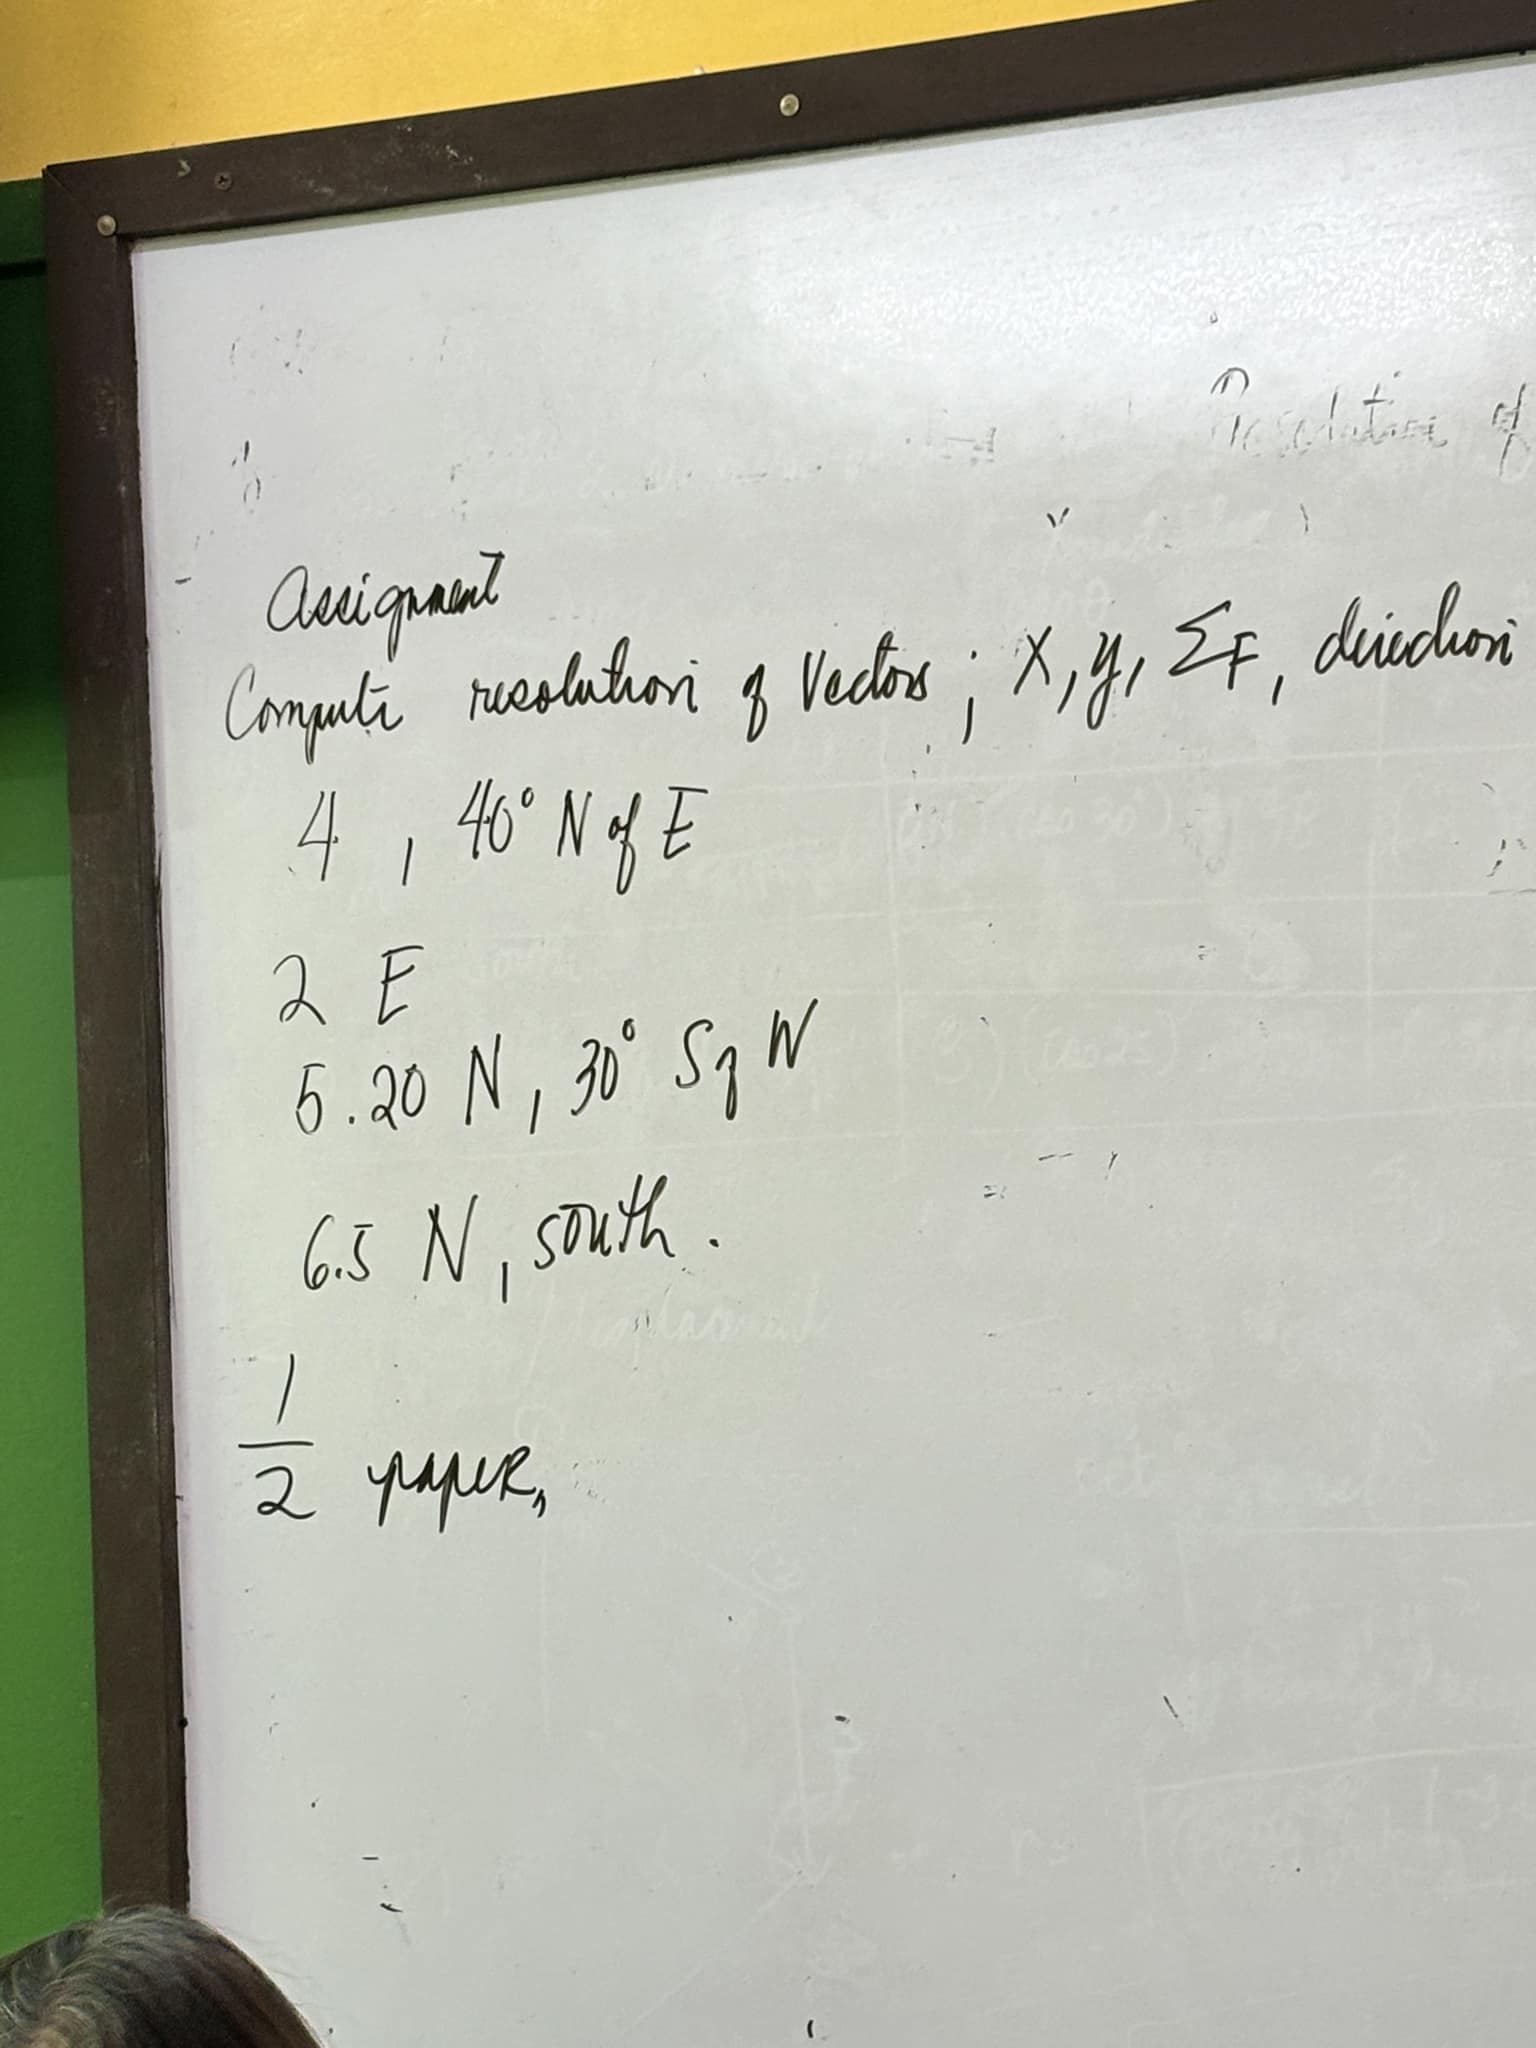 Resolution of
Assignment
Compute resolution of Vectors ; X, y, ΣF, direction
4 , 40° N of E
2 E
5.20 N, 30° S of W
6.5 N, south.
1/2 paper,